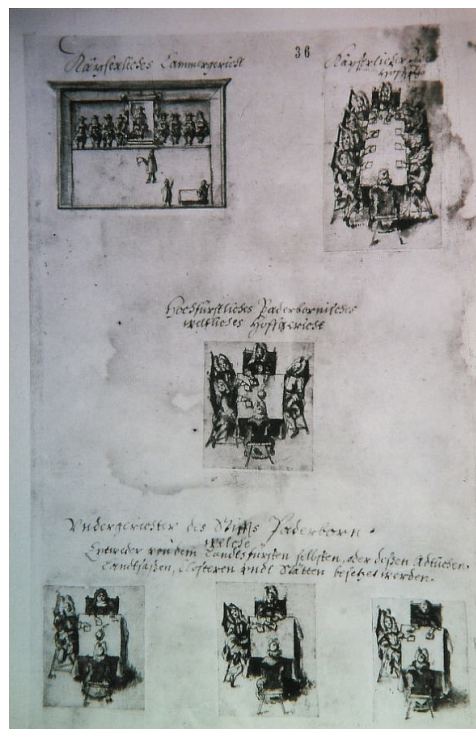 36
Käyserliches Cammergericht
Käyserlicher
Hochfürstliches Paderbornisches
weltliches Hoffgericht
Undergerichter des Stiffts Paderborn.
welche
Entweder von dem Landtsfürsten selbsten, oder deßen Adlichen
Landtsaßen, Clösteren undt Stätten besetzet werden.